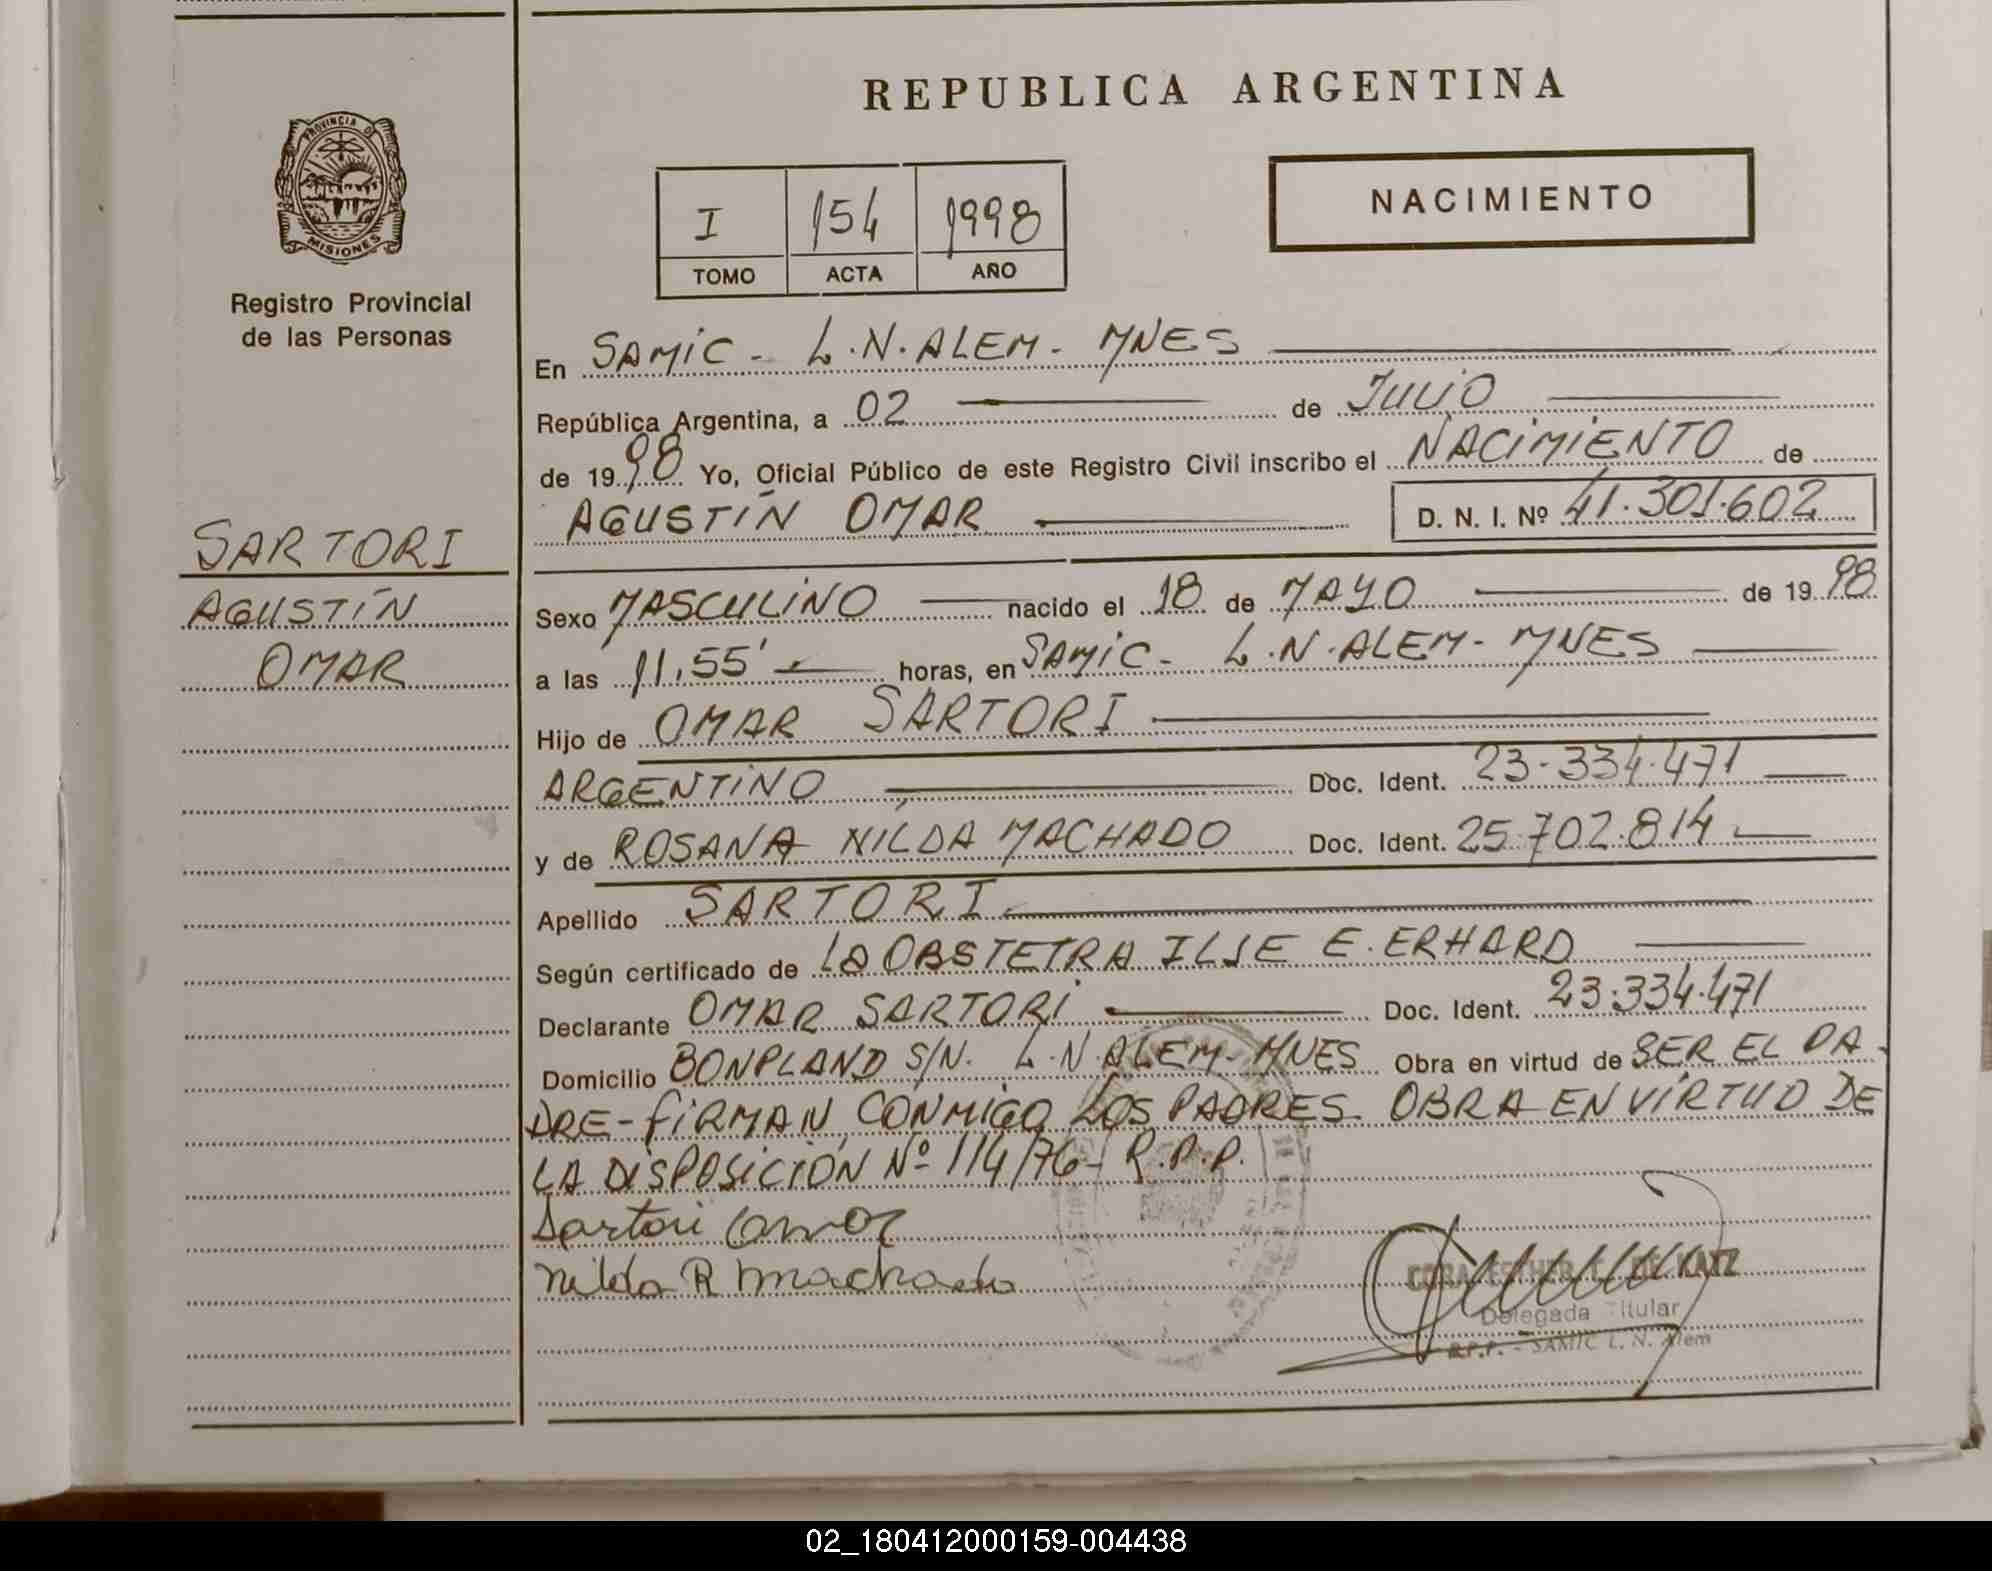 REPUBLICA ARGENTINA
PROVINCIA DE
MISIONES
Registro Provincial
de las Personas
I 154 1998
TOMO ACTA AÑO
NACIMIENTO
SARTORI
AGUSTÍN
OMAR
En SAMIC - L.N. ALEM - MNES
República Argentina, a 02 de JULIO
de 1998 Yo, Oficial Público de este Registro Civil inscribo el NACIMIENTO de
AGUSTÍN OMAR D. N. I. Nº 41.301.602
Sexo MASCULINO nacido el 18 de MAYO de 1998
a las 11,55' horas, en SAMIC - L.N. ALEM - MNES
Hijo de OMAR SARTORI
ARGENTINO Doc. Ident. 23.334.471
y de ROSANA NILDA MACHADO Doc. Ident. 25.702.814
Apellido SARTORI
Según certificado de LA OBSTETRA ILSE E. ERHARD
Declarante OMAR SARTORI Doc. Ident. 23.334.471
Domicilio BONPLAND S/N. L.N ALEM - MNES Obra en virtud de SER EL PA-
DRE - FIRMAN CONMIGO LOS PADRES. OBRA EN VIRTUD DE
LA DISPOSICIÓN Nº 114/76 - R.P.P.
Sartori Omar
Nilda R Machado
KATZ
Delegada Titular
R.P.P. - SAMIC L. N. Alem
02_180412000159-004438